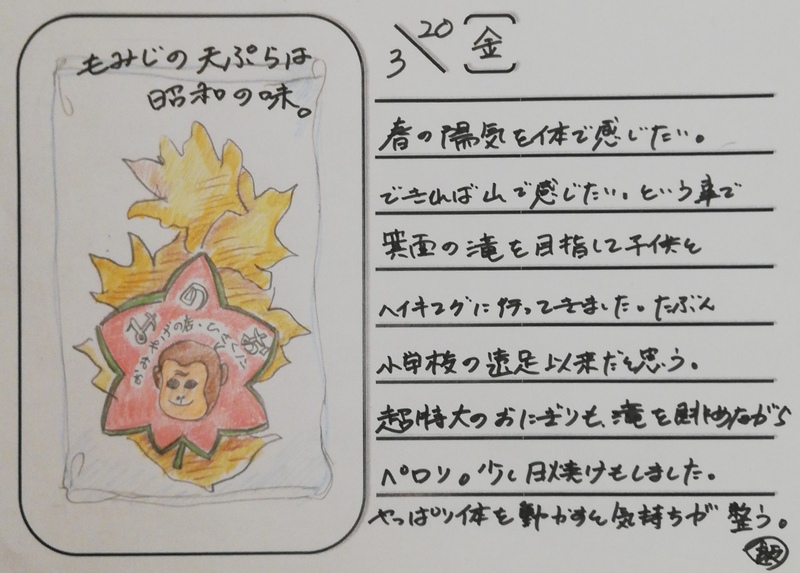 もみじの天ぷらは
昭和の味。
みのお
おみやげの店・ひさくに
3/20 [金]
春の陽気を体で感じたい。
できれば山で感じたい。という事で
箕面の滝を目指して子供と
ハイキングに行ってきました。たぶん
小学校の遠足以来だと思う。
超特大のおにぎりも、滝を眺めながら
ペロリ。少し日焼けもしました。
やっぱり体を動かすと気持ちが整う。